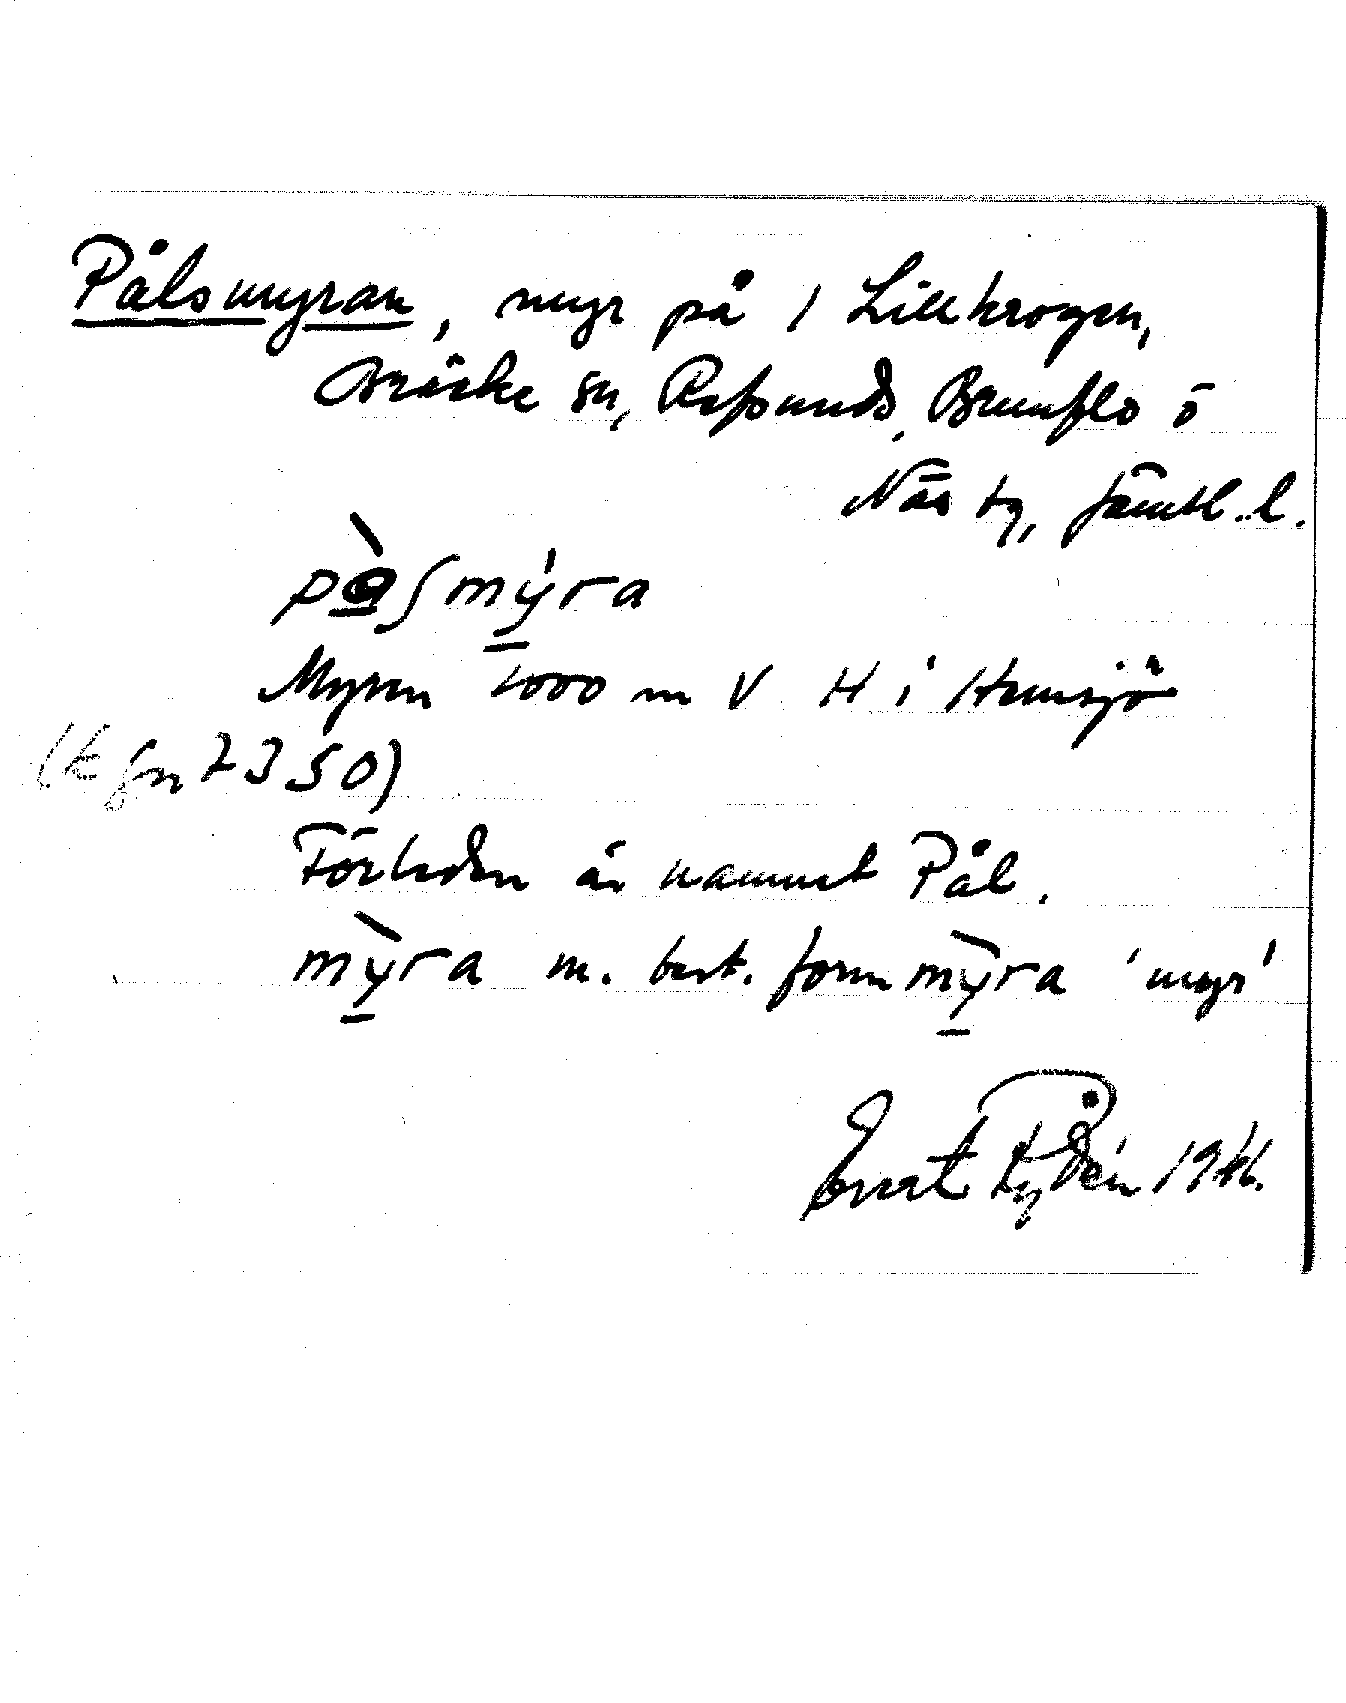 Pålsmyran, myr på 1 Lillkrogen,
Bräcke sn, Refsunds, Brunflo o
Näs tg, Jämtl. l.
pàʃmýra
Myren 1000 m V H i Hunsjö
(E fm 7350)
Förleden är namnet Pål.
mỳra m. best. form mỳra 'myr'
Evert Rydén 1946.